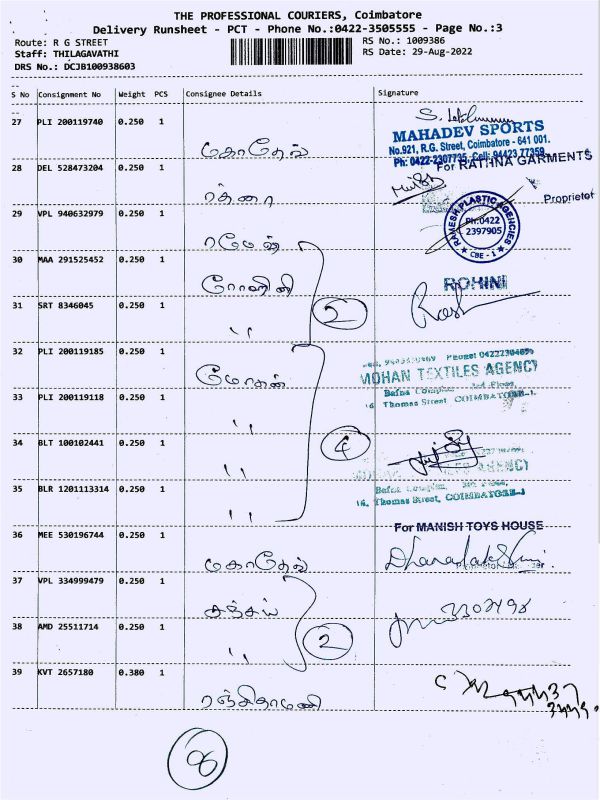 THE PROFESSIONAL COURIERS, Coimbatore
Delivery Runsheet - PCT - Phone No.:0422-3505555 - Page No.:3
Route: R G STREET
RS No.: 1009386
Staff: THILAGAVATHI
RS Date: 29-Aug-2022
DRS No.: DCJB100938603
S No Consignment No Weight PCS Consignee Details Signature
27 PLI 200119740 0.250 1 மகாதேவ்
MAHADEV SPORTS
No.921, R.G. Street, Coimbatore - 641 001.
Ph: 0422-2307735, Cell: 94423 77359
28 DEL 528473204 0.250 1 ரத்னா
For RATHNA GARMENTS
Proprietor
29 VPL 940632979 0.250 1 ரமேஷ்
RAMESH PLASTIC AGENCIES
Ph:0422
2397905
CBE - 1
30 MAA 291525452 0.250 1 ரோஹினி
ROHINI
31 SRT 8346045 0.250 1 " 2
32 PLI 200119185 0.250 1 மோகன்
MOHAN TEXTILES AGENCY
Bafna Complex, 3rd Floor,
16, Thomas Street, COIMBATORE-1.
33 PLI 200119118 0.250 1 "
34 BLT 100102441 0.250 1 " 4
35 BLR 1201113314 0.250 1 "
MOHAN TEXTILES AGENCY
Bafna Complex, 3rd Floor,
16, Thomas Street, COIMBATORE-1
36 MEE 530196744 0.250 1 மகாதேவ்
For MANISH TOYS HOUSE
37 VPL 334999479 0.250 1 சஞ்சய்
38 AMD 25511714 0.250 1 " 2
39 KVT 2657180 0.380 1 ரஞ்சிதாமணி
8